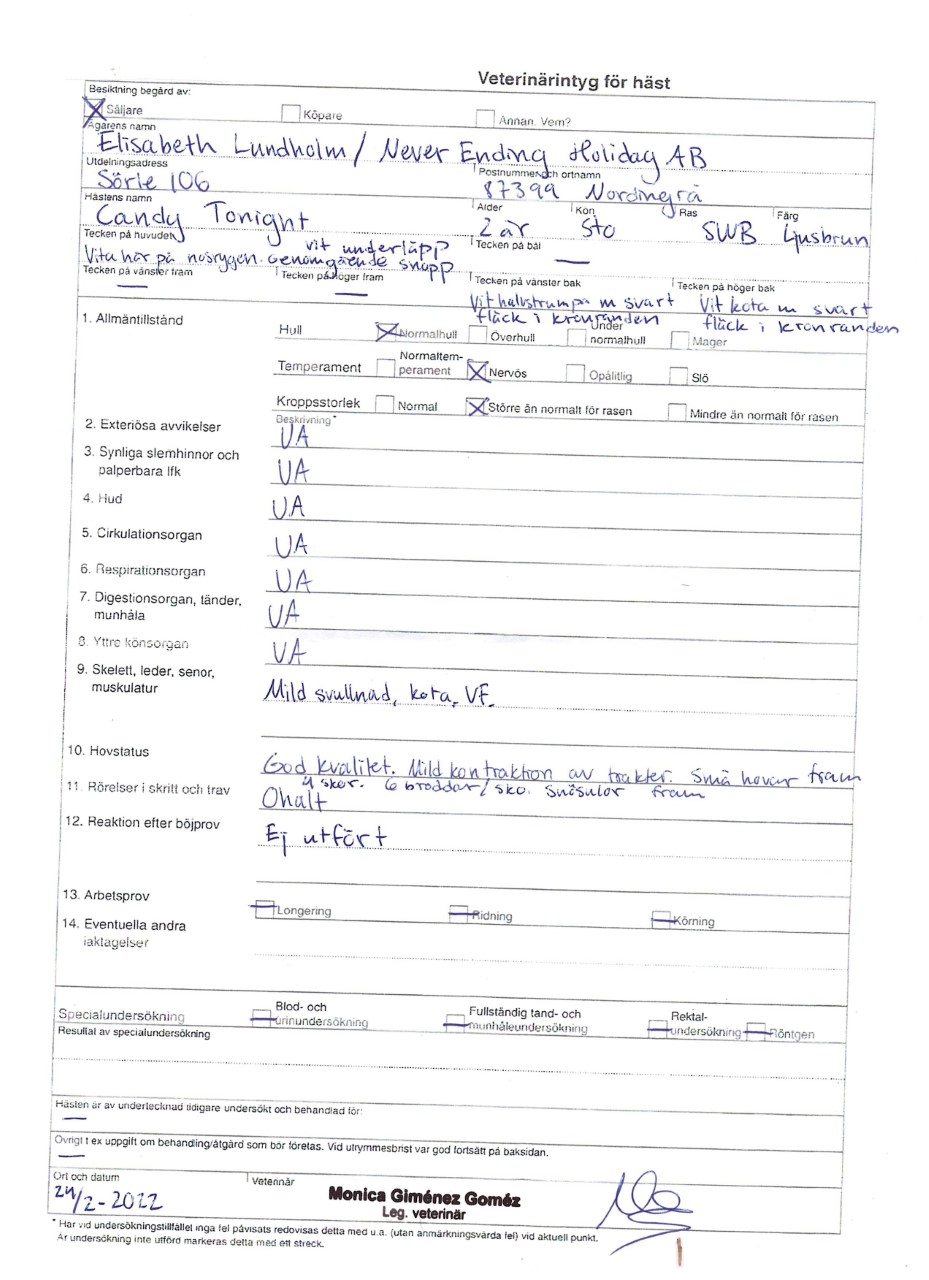 Veterinärintyg för häst
Besiktning begärd av:
Säljare Köpare Annan. Vem?
Ägarens namn
Elisabeth Lundholm / Never Ending Holiday AB
Utdelningsadress Postnummer och ortnamn
Sörle 106 87399 Nordingrå
Hästens namn Ålder Kön Ras Färg
Candy Tonight 2 år Sto SWB Ljusbrun
Tecken på huvudet vit underläpp Tecken på bål
Vita hår på nosryggen. Genomgående snopp —
Tecken på vänster fram Tecken på höger fram Tecken på vänster bak Tecken på höger bak
— — Vit halvstrumpa m svart Vit kota m svart
fläck i kronranden fläck i kronranden
1. Allmäntillstånd Hull Normalhull Överhull Under normalhull Mager
Temperament Normaltemperament Nervös Opålitlig Slö
Kroppsstorlek Normal Större än normalt för rasen Mindre än normalt för rasen
Beskrivning*
2. Exteriösa avvikelser UA
3. Synliga slemhinnor och
palperbara lfk UA
4. Hud UA
5. Cirkulationsorgan UA
6. Respirationsorgan UA
7. Digestionsorgan, tänder,
munhåla UA
8. Yttre könsorgan UA
9. Skelett, leder, senor,
muskulatur Mild svullnad, kota, VF.
10. Hovstatus God kvalitet. Mild kontraktion av trakter. Små hovar fram
4 skor. 6 broddar/sko. Snösulor fram
11. Rörelser i skritt och trav Ohalt
12. Reaktion efter böjprov Ej utfört
13. Arbetsprov Longering Ridning Körning
14. Eventuella andra
iaktagelser
Specialundersökning Blod- och urinundersökning Fullständig tand- och munhåleundersökning Rektal-undersökning Röntgen
Resultat av specialundersökning
Hästen är av undertecknad tidigare undersökt och behandlad för:
—
Övrigt t ex uppgift om behandling/åtgärd som bör företas. Vid utrymmesbrist var god fortsätt på baksidan.
—
Ort och datum Veterinär
24/2-2022 Monica Giménez Goméz
Leg. veterinär
* Har vid undersökningstillfället inga fel påvisats redovisas detta med u.a. (utan anmärkningsvärda fel) vid aktuell punkt.
Är undersökning inte utförd markeras detta med ett streck.